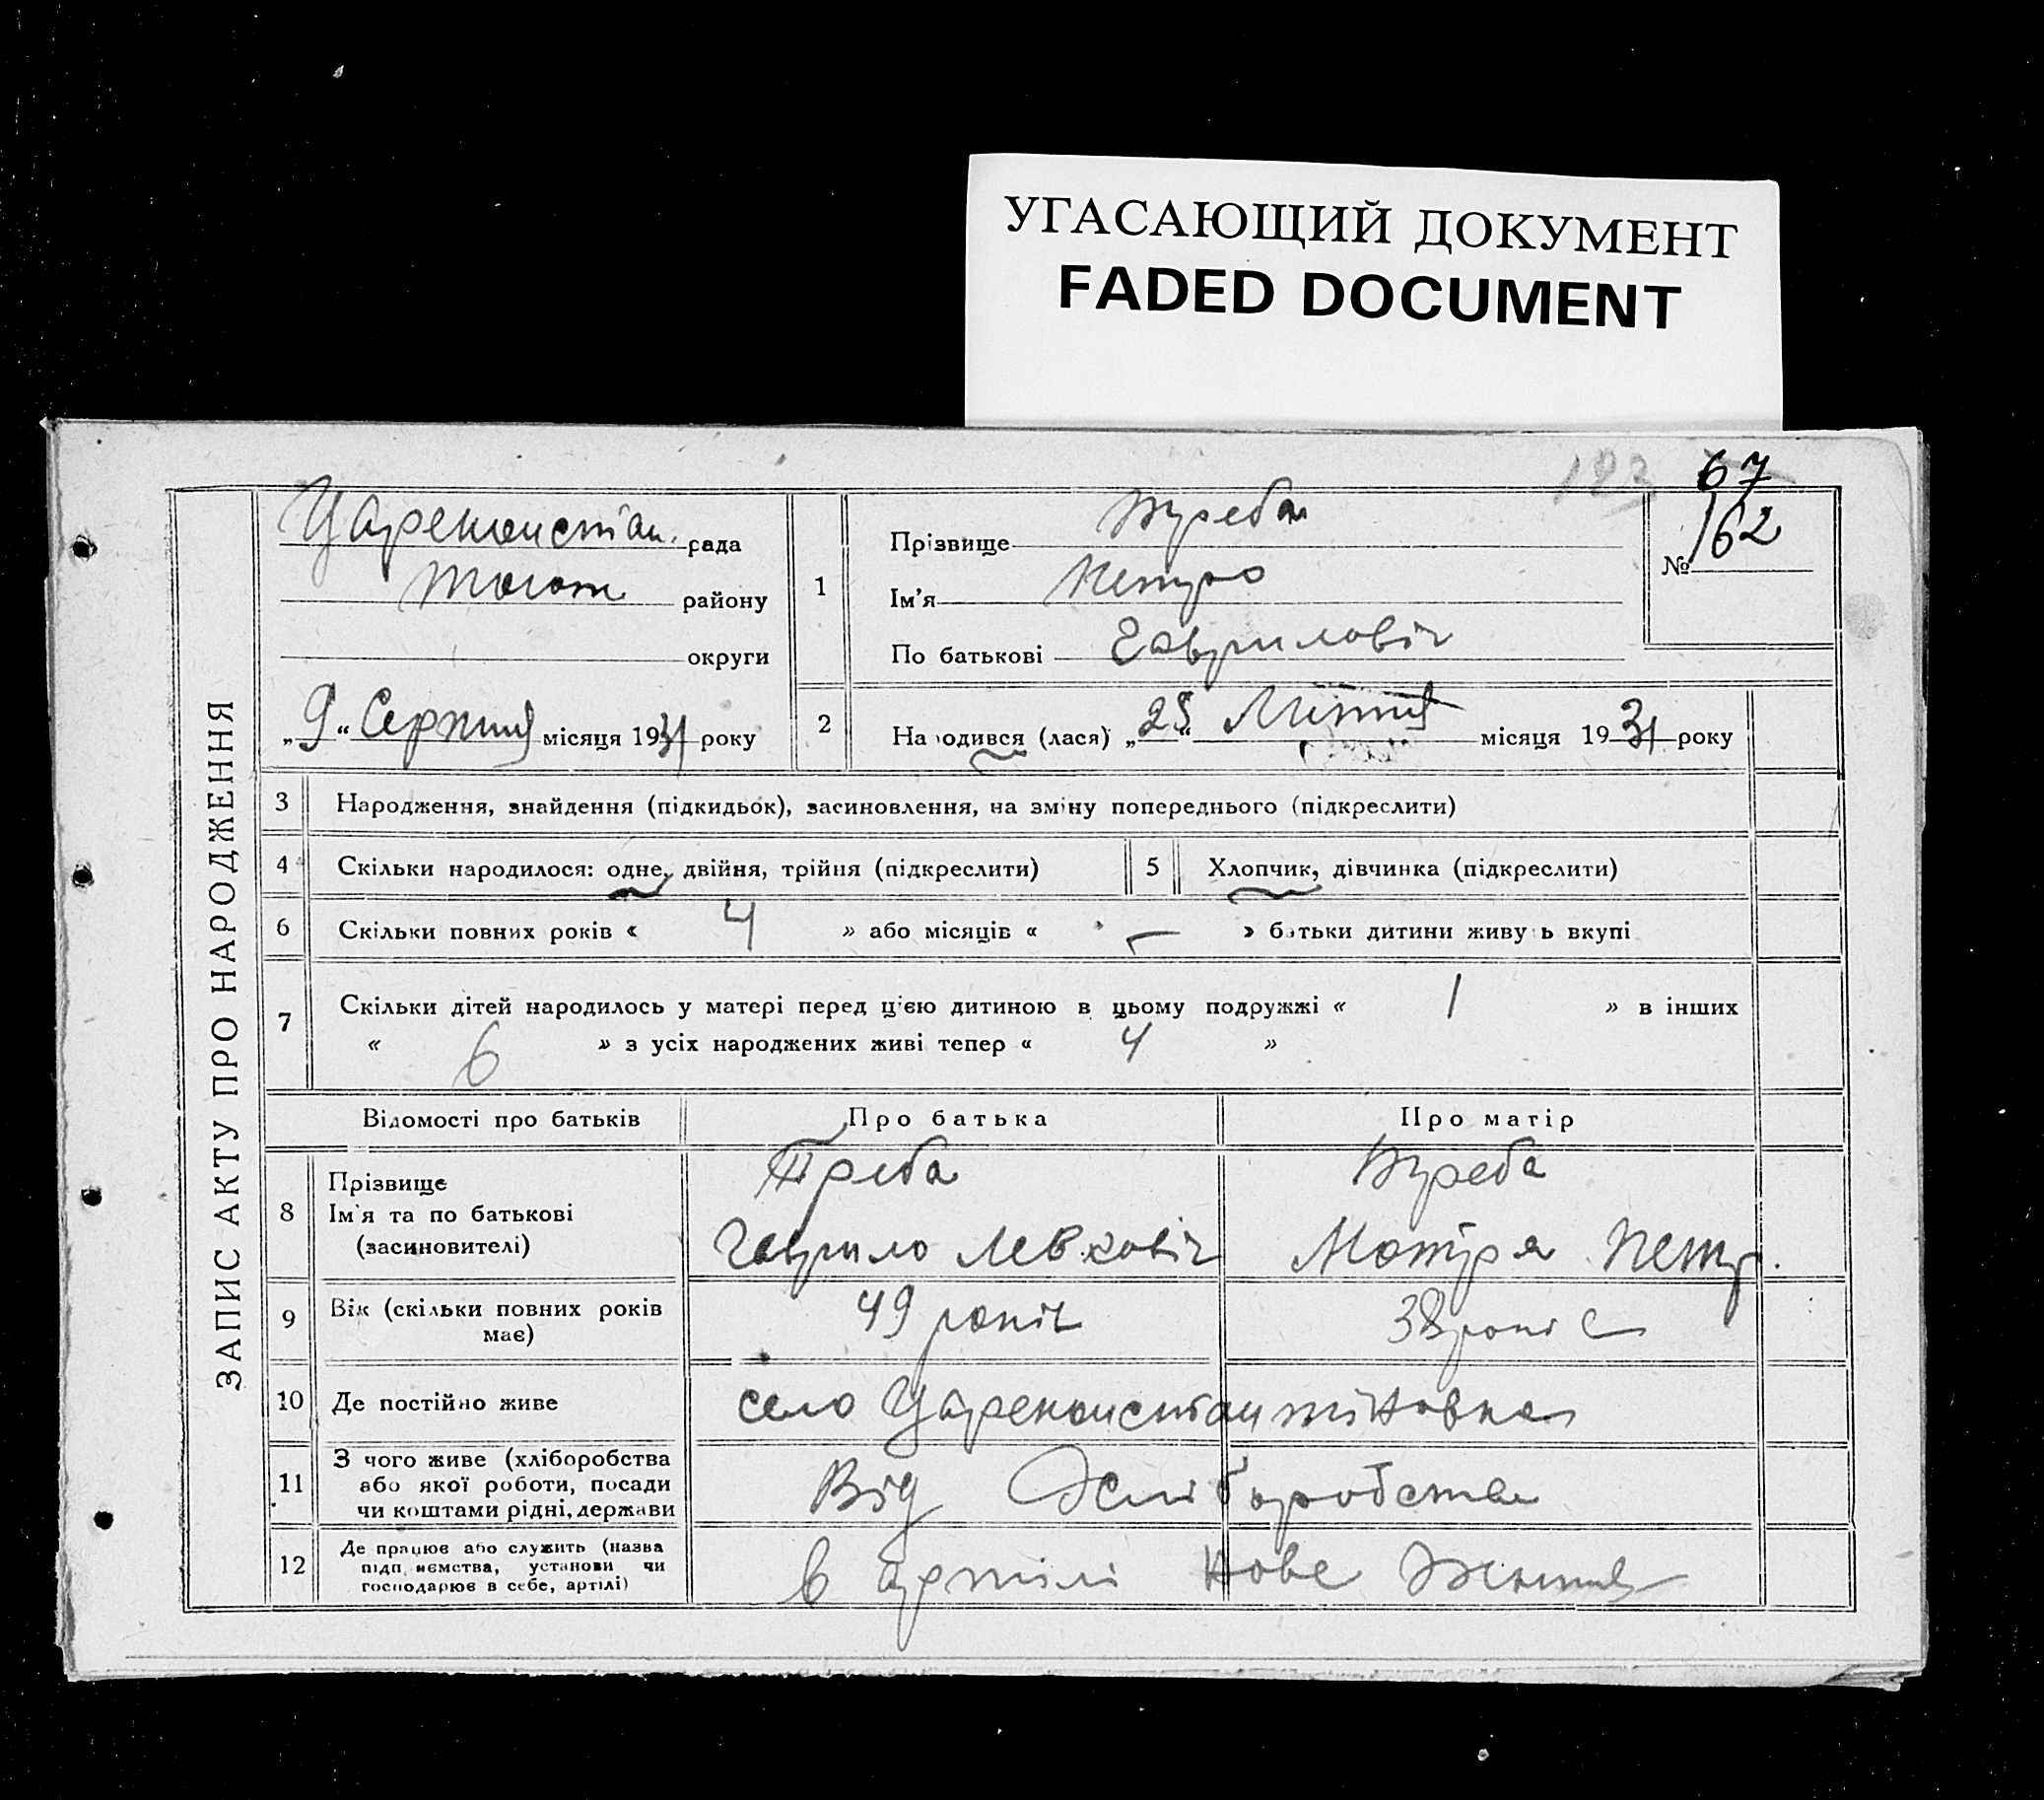 УГАСАЮЩИЙ ДОКУМЕНТ
FADED DOCUMENT
193 67
ЗАПИС АКТУ ПРО НАРОДЖЕННЯ
Цареконстан. рада
району
округи
„9“ Серпня місяця 1931 року
1
Прізвище Треба
Ім'я Петро
По батькові Гаврилович
№ 162
2 Народився (лася) „25“ Липня місяця 1931 року
3 Народження, знайдення (підкидьок), засиновлення, на зміну попереднього (підкреслити)
4 Скільки народилося: одне, двійня, трійня (підкреслити) 5 Хлопчик, дівчинка (підкреслити)
6 Скільки повних років « 4 » або місяців « - » батьки дитини живуть вкупі
7 Скільки дітей народилось у матері перед цією дитиною в цьому подружжі « 1 » в інших
« 6 » з усіх народжених живі тепер « 4 »
Відомості про батьків Про батька Про матір
8 Прізвище Треба Треба
Ім'я та по батькові Гаврило Левкович Мотря Петр.
(засиновителі)
9 Вік (скільки повних років має) 49 років 38 років
10 Де постійно живе село Цареконстантіновка
11 З чого живе (хліборобства або якої роботи, посади чи коштами рідні, держави Від Хліборобства
12 Де працює або служить (назва підприємства, установи чи господарює в себе, артілі) в артілі Нове Життя